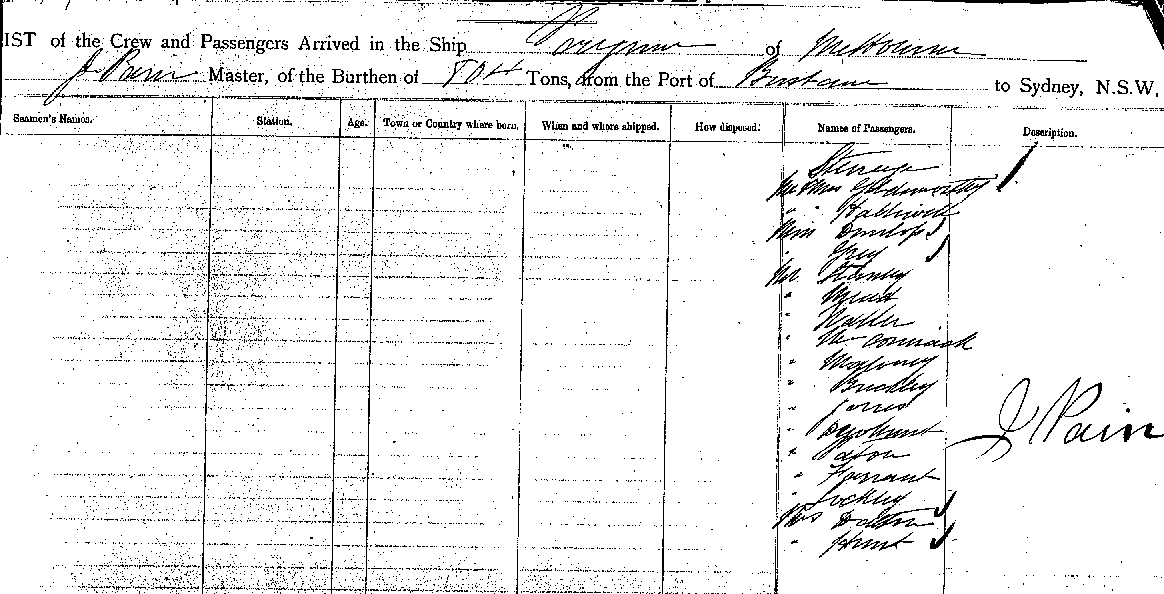 IST of the Crew and Passengers Arrived in the Ship of Melbourne
J Pain Master, of the Burthen of 804 Tons, from the Port of Brisbane to Sydney, N.S.W.,
Seamen's Names. Station. Age. Town or Country where born. When and where shipped. How disposed. Names of Passengers. Description.
Steerage
Mr & Mrs Goldsworthy
" " Halliwell
Miss Dunlop
" Grey
Mr. Stanley
" Mead
" Waller
" McCormack
" Maloney
" Buckley
" Jones
"
" Paton
" Farrant
" Lockley
Mrs Dalton
" Hunt
J Pain